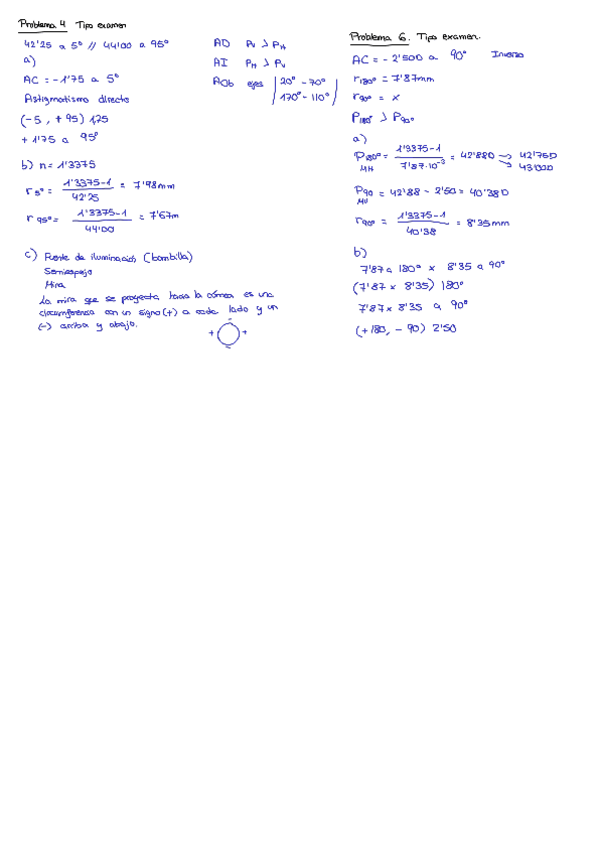 Problema 4 Tipo examen
42'25 a 5º // 44'00 a 95º
a)
AC = -1'75 a 5º
Astigmatismo directo
(-5, +95) 1,75
+1'75 a 95º
b) n = 1'3375
r5º = 1'3375-1 / 42'25 = 7'98mm
r95º = 1'3375-1 / 44'00 = 7'67m
c) Fuente de iluminación (bombilla)
Semiespejo
Mira
La mira que se proyecta hacia la córnea es una
circunferencia con un signo (+) a cada lado y un
(-) arriba y abajo.
-
+ +
-
AD Pv > PH
AI PH > Pv
AOb ejes | 20º - 70º |
| 170º - 110º |
Problema 6. Tipo examen.
AC = -2'50D a 90º Inverso
r180º = 7'87mm
r90º = x
P180º > P90º
a)
P180º = 1'3375-1 / 7'87·10⁻³ = 42'88D → 42'75D
→ 43'00D
MH
P90 = 42'88 - 2'50 = 40'38D
MV
r90º = 1'3375-1 / 40'38 = 8'35mm
b)
7'87 a 180º x 8'35 a 90º
(7'87 x 8'35) 180º
7'87 x 8'35 a 90º
(+180, -90) 2'50